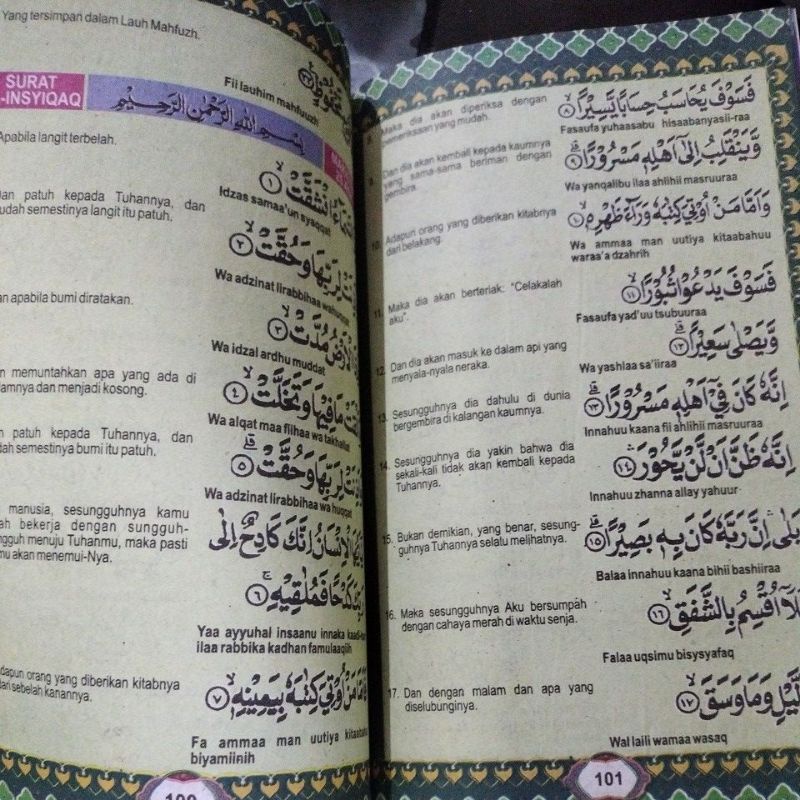 Yang tersimpan dalam Lauh Mahfuzh.
Fii lauhim mahfuuzh
SURAT
-INSYIQAQ
بِسْمِ اللّٰهِ الرَّحْمٰنِ الرَّحِيْمِ
Apabila langit terbelah.
انْشَقَّتْۙ ١
Idzas samaa'un syaqqat
dan patuh kepada Tuhannya, dan
udah semestinya langit itu patuh.
لِرَبِّهَا وَحُقَّتْۙ ٢
Wa adzinat lirabbihaa wahuqqat
an apabila bumi diratakan.
الْاَرْضُ مُدَّتْۙ ٣
Wa idzal ardhu muddat
n memuntahkan apa yang ada di
lamnya dan menjadi kosong.
مَا فِيْهَا وَتَخَلَّتْۙ ٤
Wa alqat maa fiihaa wa takhallat
n patuh kepada Tuhannya, dan
dah semestinya bumi itu patuh.
لِرَبِّهَا وَحُقَّتْۗ ٥
Wa adzinat lirabbihaa wa huqqat
manusia, sesungguhnya kamu
ah bekerja dengan sungguh-
ngguh menuju Tuhanmu, maka pasti
mu akan menemui-Nya.
الْاِنْسَانُ اِنَّكَ كَادِحٌ اِلٰى
كَدْحًا فَمُلٰقِيْهِۚ ٦
Yaa ayyuhal insaanu innaka kaad-
ilaa rabbika kadhan famulaaqiih
Adapun orang yang diberikan kitabnya
dari sebelah kanannya.
مَنْ اُوْتِيَ كِتٰبَهٗ بِيَمِيْنِهٖۙ ٧
Fa ammaa man uutiya kitaabahu
biyamiinih
8. Maka dia akan diperiksa dengan
pemeriksaan yang mudah.
فَسَوْفَ يُحَاسَبُ حِسَابًا يَّسِيْرًاۙ ٨
Fasaufa yuhaasabu hisaabanyasii-raa
9. Dan dia akan kembali kepada kaumnya
yang sama-sama beriman dengan
gembira.
وَّيَنْقَلِبُ اِلٰٓى اَهْلِهٖ مَسْرُوْرًاۗ ٩
Wa yanqalibu ilaa ahlihii masruuraa
10. Adapun orang yang diberikan kitabnya
dari belakang.
وَاَمَّا مَنْ اُوْتِيَ كِتٰبَهٗ وَرَاۤءَ ظَهْرِهٖۙ ١٠
Wa ammaa man uutiya kitaabahuu
waraa'a dzahrih
11. Maka dia akan berteriak: "Celakalah
aku".
فَسَوْفَ يَدْعُوْا ثُبُوْرًاۙ ١١
Fasaufa yad'uu tsubuuraa
12. Dan dia akan masuk ke dalam api yang
menyala-nyala neraka.
وَّيَصْلٰى سَعِيْرًاۗ ١٢
Wa yashlaa sa'iiraa
13. Sesungguhnya dia dahulu di dunia
bergembira di kalangan kaumnya.
اِنَّهٗ كَانَ فِيْٓ اَهْلِهٖ مَسْرُوْرًاۗ ١٣
Innahuu kaana fii ahlihii masruuraa
14. Sesungguhnya dia yakin bahwa dia
sekali-kali tidak akan kembali kepada
Tuhannya.
اِنَّهٗ ظَنَّ اَنْ لَّنْ يَّحُوْرَۛ ١٤
Innahuu zhanna allay yahuur
15. Bukan demikian, yang benar, sesung-
guhnya Tuhannya selatu melihatnya.
بَلٰىۛ اِنَّ رَبَّهٗ كَانَ بِهٖ بَصِيْرًاۗ ١٥
Balaa innahuu kaana bihii bashiiraa
16. Maka sesungguhnya Aku bersumpah
dengan cahaya merah di waktu senja.
فَلَآ اُقْسِمُ بِالشَّفَقِۙ ١٦
Falaa uqsimu bisysyafaq
17. Dan dengan malam dan apa yang
diselubunginya.
الَّيْلِ وَمَا وَسَقَۙ ١٧
Wal laili wamaa wasaq
101